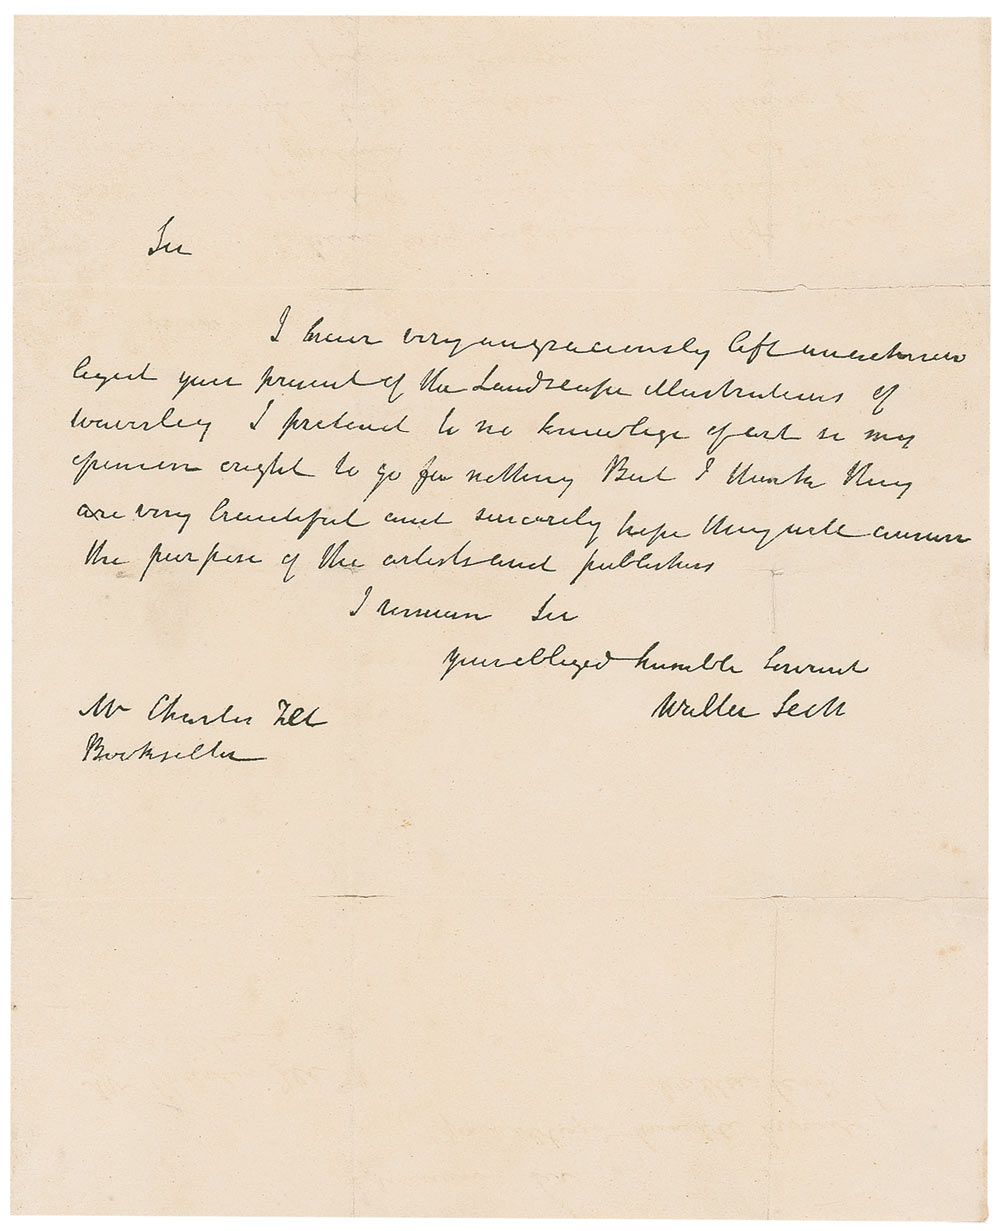 Sir
I have very ungraciously left unacknow
leged your present of the Landscape illustrations of
Waverley I pretend to no knowlege of art so my
opinion ought to go for nothing But I think they
are very beautiful and sincerely hope they will answer
the purpose of the artists and publishers
I remain Sir
Your obliged humble Servant
Walter Scott
Mr Charles Tilt
Bookseller